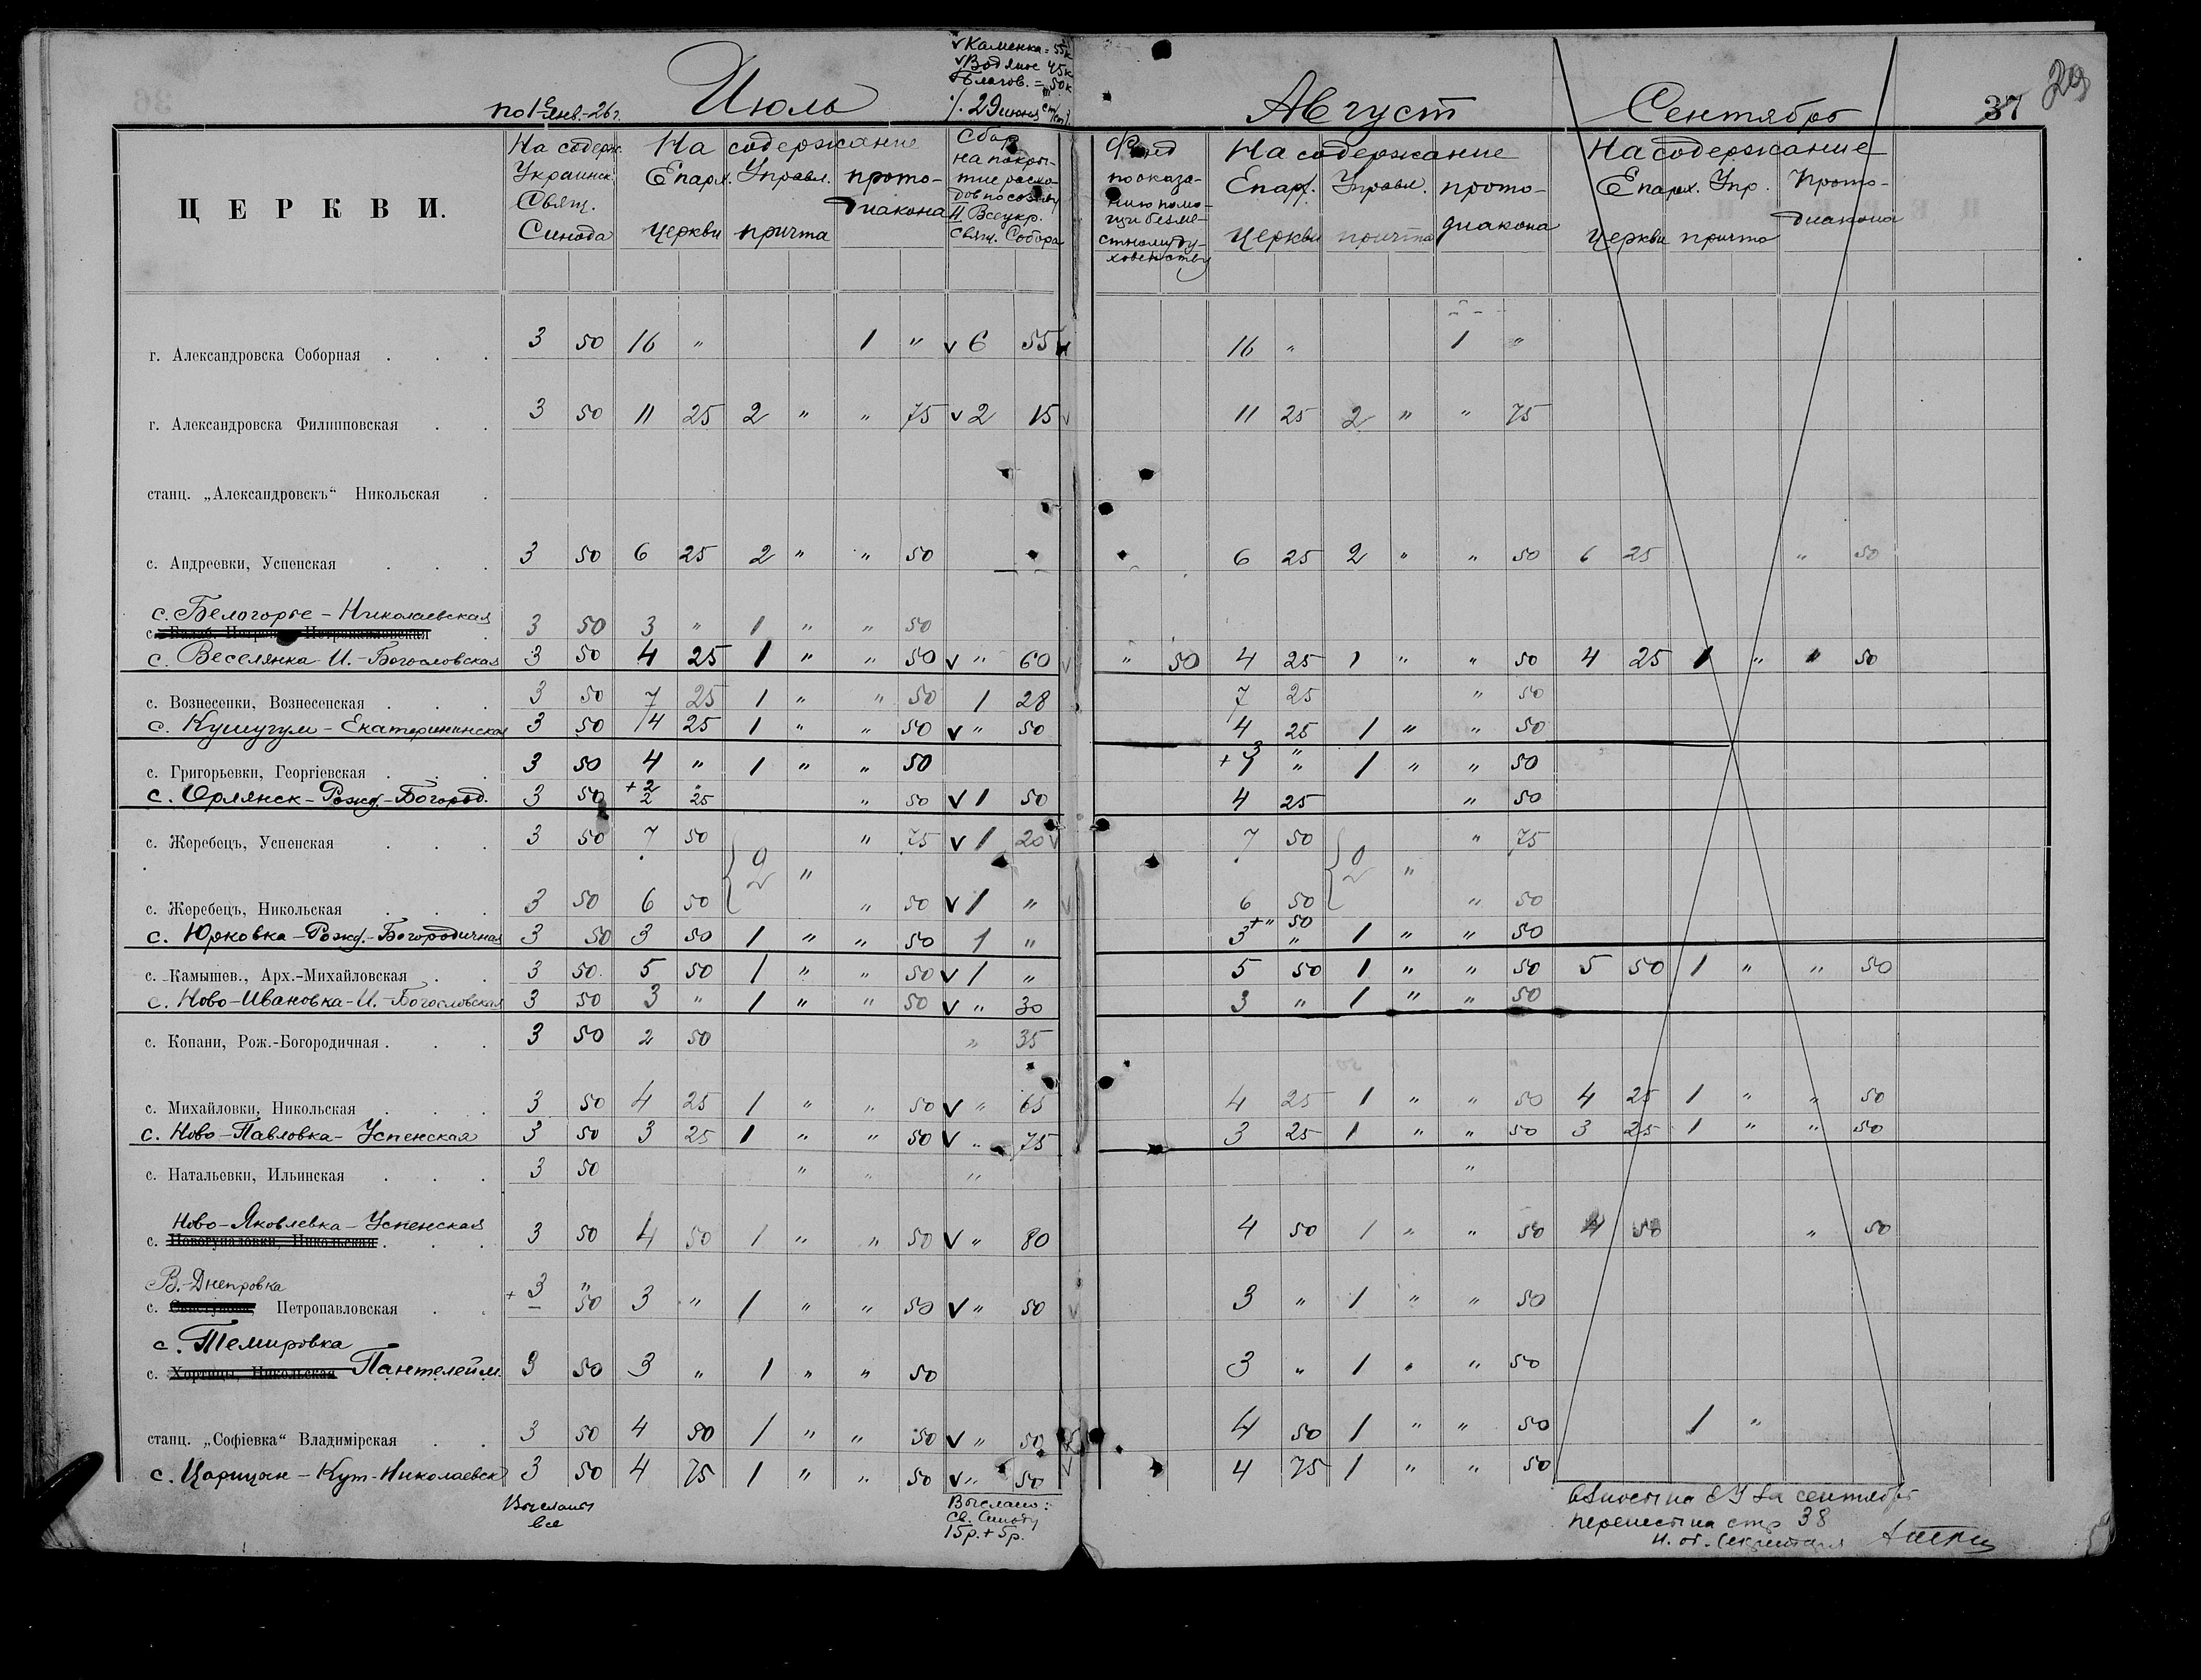 по 1е янв.-26 г. Июль
v Каменка = 55к
v Водяное 45к
Благов. = 50к
29 июня
Август
Сентябрь
37
29
ЦЕРКВИ.
На содерж. Украинск. Свящ. Синода
На содержание
Епарх. Управл. прото-
диакона
церкви причта
Сбор на покры-
тие расхо-
дов по созыву
II Всеукр.
Свящ. Собора
Фонд
по оказа-
нию помо-
щи безме-
стному ду-
ховенству
На содержание
Епарх. Управл. прото-
церкви причта диакона
На содержание
Епарх. Упр. Прото-
диакона
церкви причта
г. Александровска Соборная . . . 3 50 16 " 1 " v 6 55 16 " 1 "
г. Александровска Филипповская . . 3 50 11 25 2 " " 75 v 2 15 v 11 25 2 " " 75
станц. „Александровскъ“ Никольская .
с. Андреевки, Успенская . . . 3 50 6 25 2 " " 50 6 25 2 " " 50 6 25 " 50
с. Белогорье - Николаевская
с. 3 50 3 " 1 " " 50
с. Веселянка И.-Богословская 3 50 4 25 1 " " 50 v " 60 v " 50 4 25 1 " " 50 4 25 1 " " 50
с. Вознесенки, Вознесенская . . . 3 50 7 25 1 " " 50 1 28 7 25 " 50
с. Кушугум - Екатерининская 3 50 4 25 1 " " 50 v " 50 4 25 1 " " 50
с. Григорьевки, Георгіевская . . . 3 50 4 " 1 " " 50 + 3 " 1 " 1 " " 50
с. Орлянск - Рожд.-Богород. 3 50 + 2 " 2 25 " 50 v 1 50 4 25 " 50
с. Жеребецъ, Успенская . . . 3 50 7 50 " 75 v 1 20 v 7 50 " 75
2 " 2 "
с. Жеребецъ, Никольская . . . 3 50 6 50 " 50 v 1 " v 6 50 " 50
с. Юрковка - Рожд.-Богородичная 3 50 3 50 1 " " 50 1 " + " 50 3 " 1 " " 50
с. Камышев., Арх.-Михайловская . . 3 50 5 50 1 " " 50 v 1 " 5 50 1 " " 50 5 50 1 " " 50
с. Ново-Ивановка-И.-Богословская 3 50 3 " 1 " " 50 v " 30 3 " 1 " " 50
с. Копани, Рож.-Богородичная . . . 3 50 2 50 " 35
с. Михайловки, Никольская . . . 3 50 4 25 1 " " 50 v " 65 4 25 1 " " 50 4 25 1 " " 50
с. Ново-Павловка-Успенская 3 50 3 25 1 " " 50 v " 75 3 25 1 " " 50 3 25 1 " " 50
с. Натальевки, Ильинская . . . 3 50 " " " "
Ново-Яковлевка-Успенская
с. Новогупаловки, Никольская . . . 3 50 4 50 1 " " 50 v " 80 4 50 1 " " 50 4 50 " 50
В.-Днепровка
с. Петропавловская . . + 3 " – 50 3 " 1 " " 50 v " 50 v 3 " 1 " " 50
с. Темировка
с. Хортицы, Никольская Пантелейм. 3 50 3 " 1 " " 50 3 " 1 " " 50
станц. „Софіевка“ Владимірская . . 3 50 4 50 1 " " 50 v " 50 4 50 1 " " 50 1 "
с. Царицын-Кут-Николаевск 3 50 4 75 1 " " 50 v " 50 4 75 1 " " 50
Высланы
все
Выслано:
Св. Синоду
15р.+5р.
взносы на ЕУ за сентябрь
перенесены стр 38
И. об. Секретаря